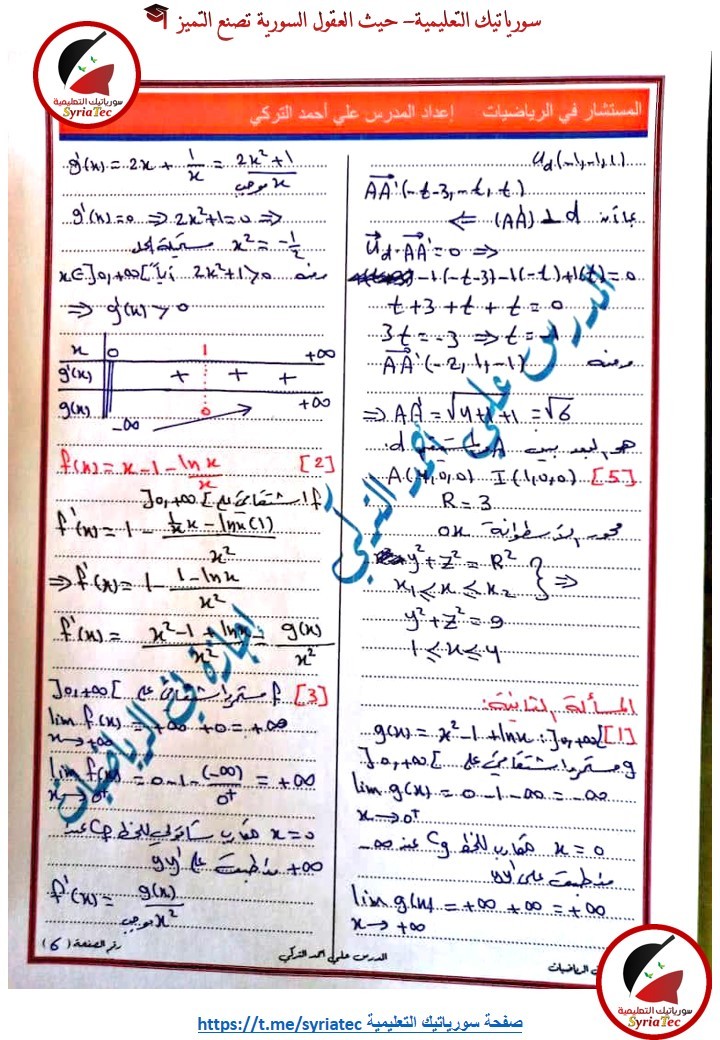 سورياتيك التعليمية– حيث العقول السورية تصنع التميز
سورياتيك التعليمية
SyriaTec
المستشار في الرياضيات إعداد المدرس علي أحمد التركي
u_d(-1,-1,1)
AA'(-t-3,-t,t)
(AA') ⊥ d ⇐
u_d·AA' = 0 ⇒
-1(-t-3)-1(-t)+1(t)=0
t+3+t+t=0
3t=-3 ⇒ t=-1
ومنه AA'(-2,1,-1)
⇒ AA' = √4+1+1 = √6
هو البعد بين A والمستقيم d.
[5] A(4,0,0) I(1,0,0)
R=3
محور الأسطوانة ox
y²+z²=R²
x₁≤x≤x₂ } ⇒
y²+z²=9
1≤x≤4
المسألة الثانية:
[1] g(x)=x²-1+lnx :]0,+∞[
g مستمر واشتقاقي على ]0,+∞[
lim g(x)=0-1-∞=-∞
x→0⁺
x=0 مقارب للخط Cg عند -∞
منطبق على yy'
lim g(x)=+∞+∞=+∞
x→+∞
g'(x)=2x+1/x=2x²+1/x موجب
g'(x)=0 ⇒ 2x²+1=0 ⇒
x²=-1/2 مستحيلة الحل
ومنه 2x²+1>0 أياً x∈]0,+∞[
⇒ g'(x)>0
x 0 1 +∞
g'(x) + + +
g(x) -∞ 0 +∞
[2] f(x)=x-1-lnx/x
f اشتقاقي على ]0,+∞[
f'(x)=1-(1/x x-lnx(1))/x²
⇒ f'(x)=1-(1-lnx)/x²
f'(x)=(x²-1+lnx)/x²=g(x)/x²
[3] f مستمر واشتقاقي على ]0,+∞[
lim f(x)=+∞+0=+∞
x→+∞
lim f(x)=0-1-(-∞)/0⁺=+∞
x→0⁺
x=0 مقارب شاقولي للخط Cf عند
+∞ منطبق على yy'
f'(x)=g(x)/x² موجب
المدرس علي احمد التركي
رقم الصفحة (6)
المدرس علي أحمد التركي
إجازة في الرياضيات
سورياتيك التعليمية
SyriaTec
صفحة سورياتيك التعليمية https://t.me/syriatec